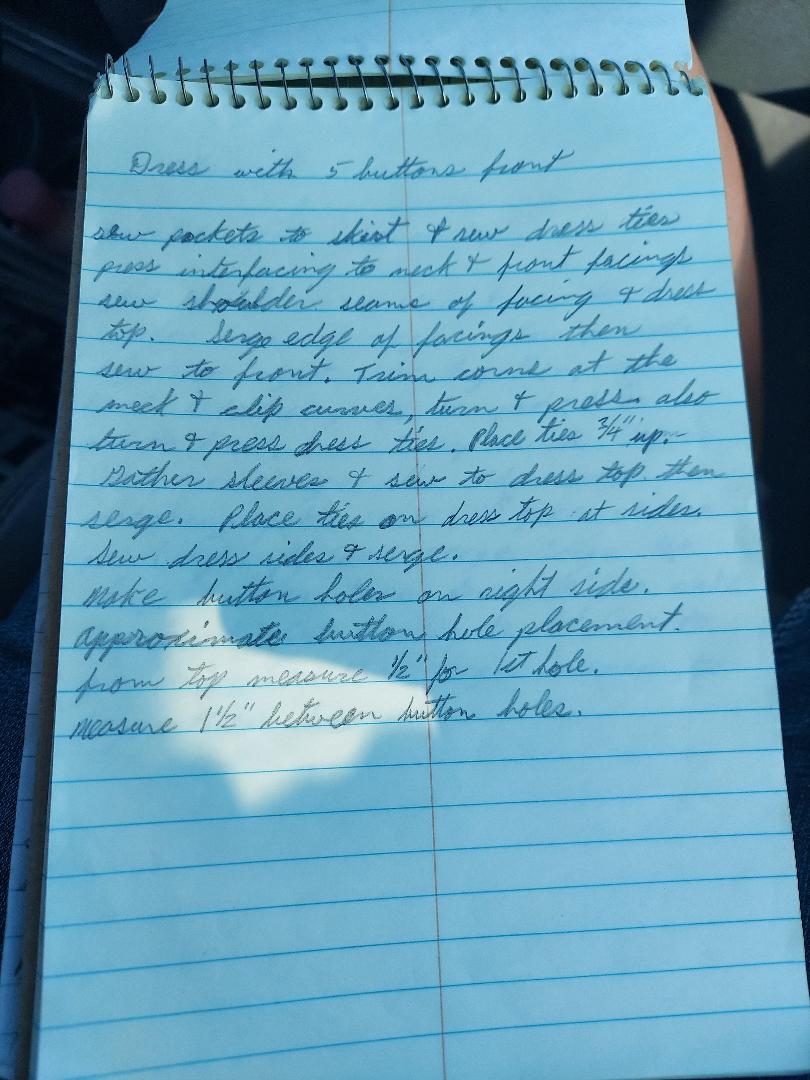 Dress with 5 buttons front
sew pockets to skirt & sew dress ties
press interfacing to neck & front facings
sew shoulder seams of facing & dress
top. Serge edge of facings then
sew to front. Trim corns at the
neck & clip curves, turn & press. also
turn & press dress ties. Place ties 3/4" up.
Gather sleeves & sew to dress top then
serge. Place ties on dress top at sides.
Sew dress sides & serge.
Make button holes on right side.
Approximate button hole placement.
from top measure 1/2" for 1st hole.
measure 1 1/2" between button holes.